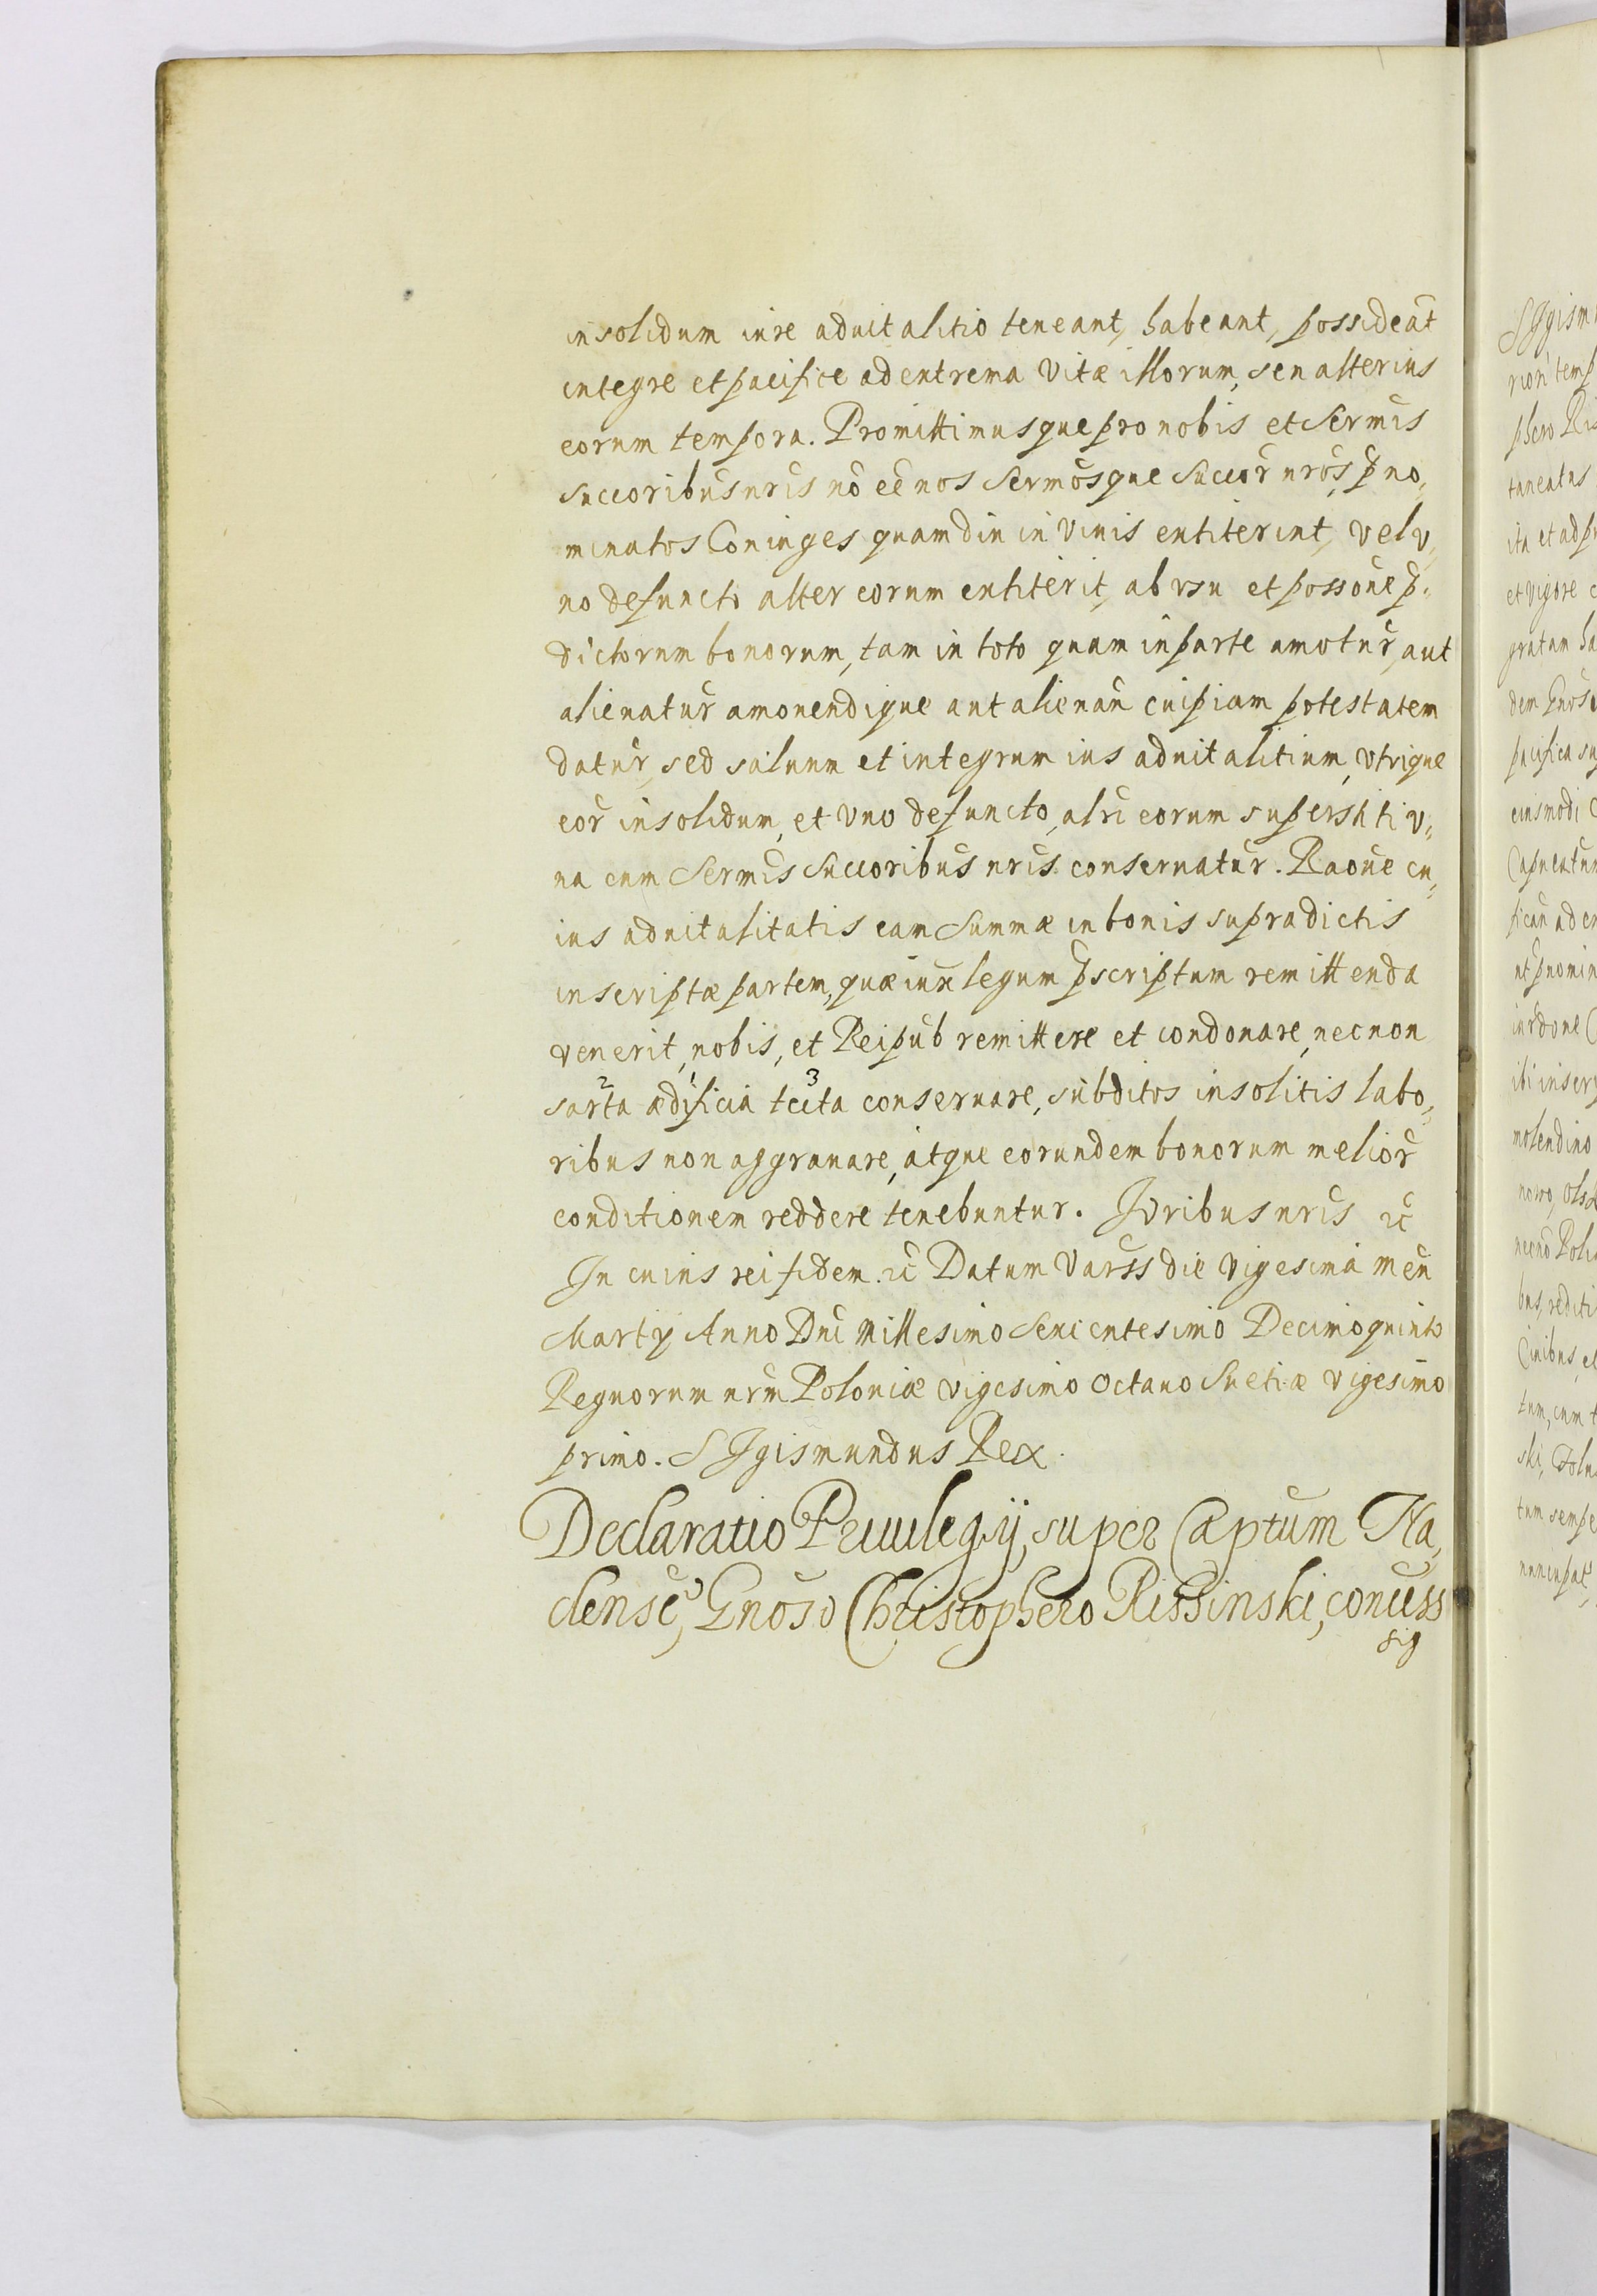 insolidum iure aduitalitio teneant, habeant, possideāt
integre et pacifice ad extrema vitæ illorum, seu alterius
eorum tempora. Promittimusque pro nobis et Sermis
Succoribus nris nō eē nos Sermosque Succor nros, p̄no,
minatos Coniuges quamdiu in viuis extiterint, vel v,
no defuncto alter eorum extiterit, ab vsu et possone p̄,
dictorum bonorum, tam in toto quam in parte amotur, aut
alienatur amouendique aut alienan cuipiam potestatem
datur, sed saluum et integrum ius aduitalitium, vtrique
eor insolidum, et vno defuncto, alri eorum superstiti v,
na cum Sermis Succoribus nris conseruatur. Raone cu,
ius aduitalitatis eam Summæ in bonis supradictis
inscriptæ partem, quæ iux legum p̄scriptum remittenda
venerit, nobis, et Reipub remittere et condonare, necnon
sarta ædificia tecta conseruare, subditos insolitis labo,
ribus non aggrauare, atque eorundem bonorum melior
conditionem reddere tenebuntur. Iuribus nris &c
In cuius rei fidem &c Datum Varss die vigesima men
Martÿ Anno Dni Millesimo Sexcentesimo Decimoquinto
Regnorum nrm Poloniæ vigesimo octauo Suetiæ vigesimo
primo. SIgismundus Rex.
Declaratio Priuilegij, super Captum Ha,
dense, Gnoso Christophero Rissinski, concess
Sig